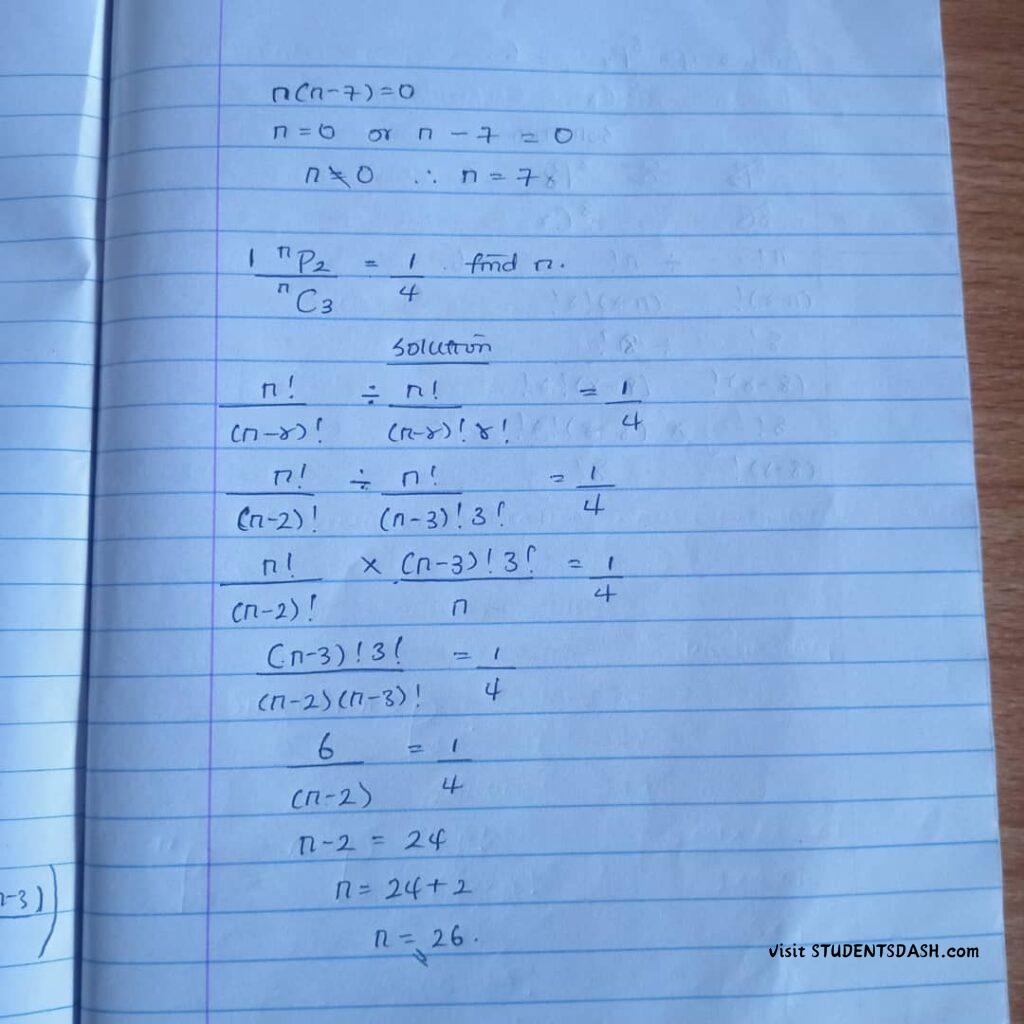 n(n-7)=0
n=0 or n-7=0
n≠0 ∴ n=7
1 ⁿP₂/ⁿC₃ = 1/4 find n.
solution
n!/(n-r)! ÷ n!/(n-r)!r! = 1/4
n!/(n-2)! ÷ n!/(n-3)!3! = 1/4
n!/(n-2)! × (n-3)!3!/n = 1/4
(n-3)!3!/(n-2)(n-3)! = 1/4
6/(n-2) = 1/4
n-2 = 24
n-3)
n = 24+2
n = 26.
visit STUDENTSDASH.com